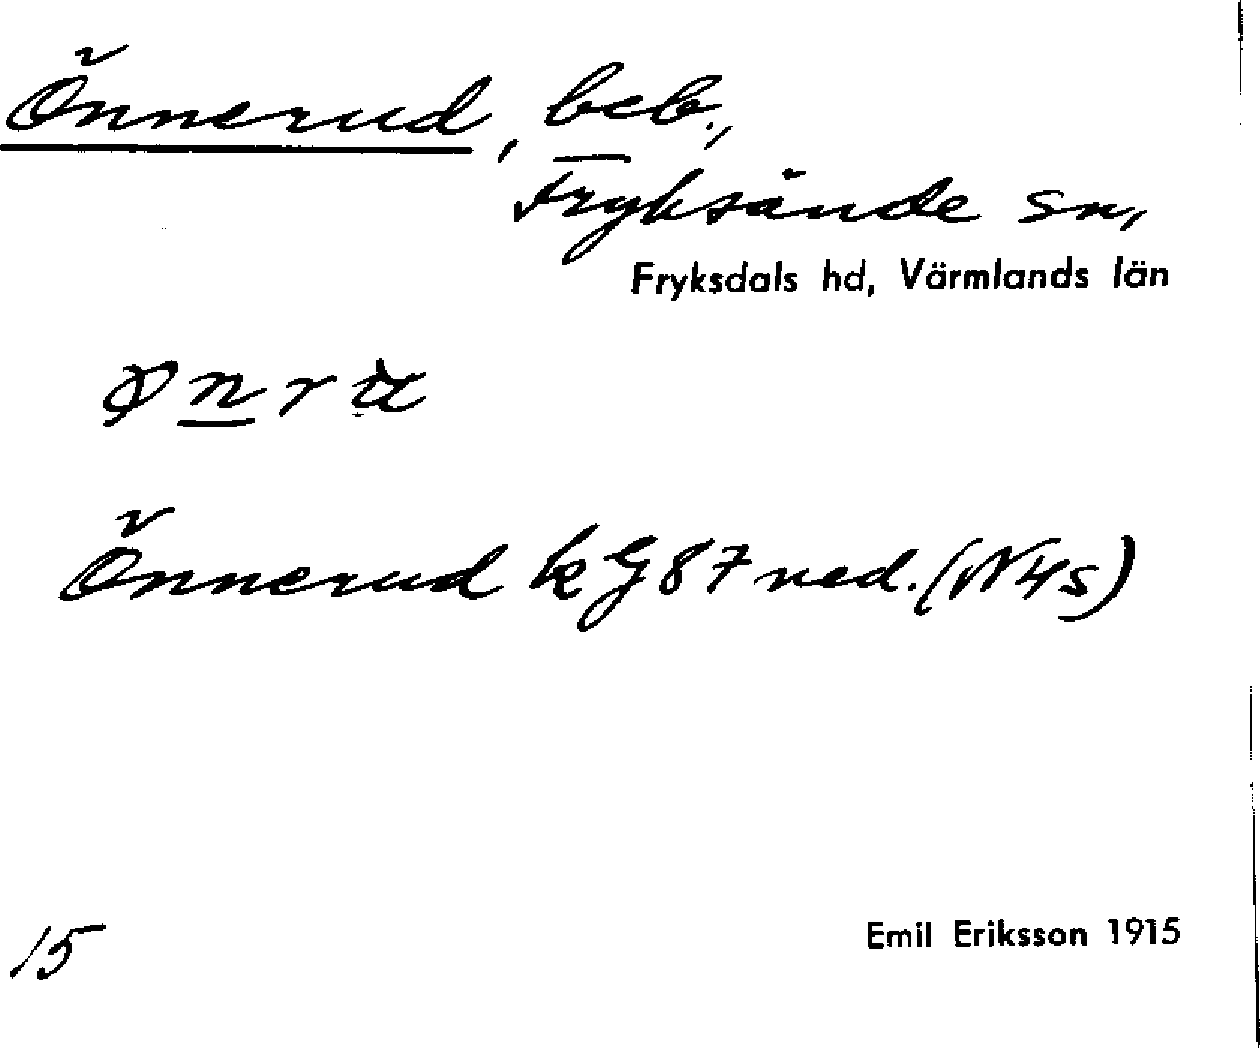 Önnerud, beb.,
Fryksände sn,
Fryksdals hd, Värmlands län
Önnerud k G87 ned. (N4s)
15
Emil Eriksson 1915